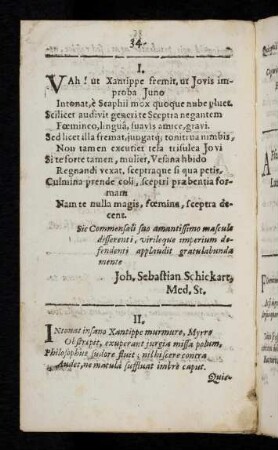 34.
I.
VAh! ut Xantippe fremit, ut Jovis im-
proba Juno
Intonat, è Scaphii mox quoque nube pluet.
Scilicet audivit generi te Sceptra negantem
Fœmineo, linguâ, suavis amice, gravi.
Sed licet illa fremat, jungatq; tonitrua nimbis,
Non tamen excutiet tela trisulca Jovi
Si te forte tamen, mulier, Vesana libido
Regnandi vexat, sceptraque si qua petis,
Culmina prende coli, sceptri præbentia for-
mam
Nam te nulla magis, fœmina, sceptra de-
cent.
Sic Commensali suo amantissimo masculè
disserenti, virileque imperium de-
fendenti applaudit gratulabunda
mente
Joh. Sebastian Schickart,
Med. St.
II.
INtonat insano Xantippe murmure, Myrro
Obstrepit, exuperant jurgia missa polum,
Philosophus sudore fluit; nihiscere contra
Audet, ne matulæ suffluat imbre caput.
Quia-